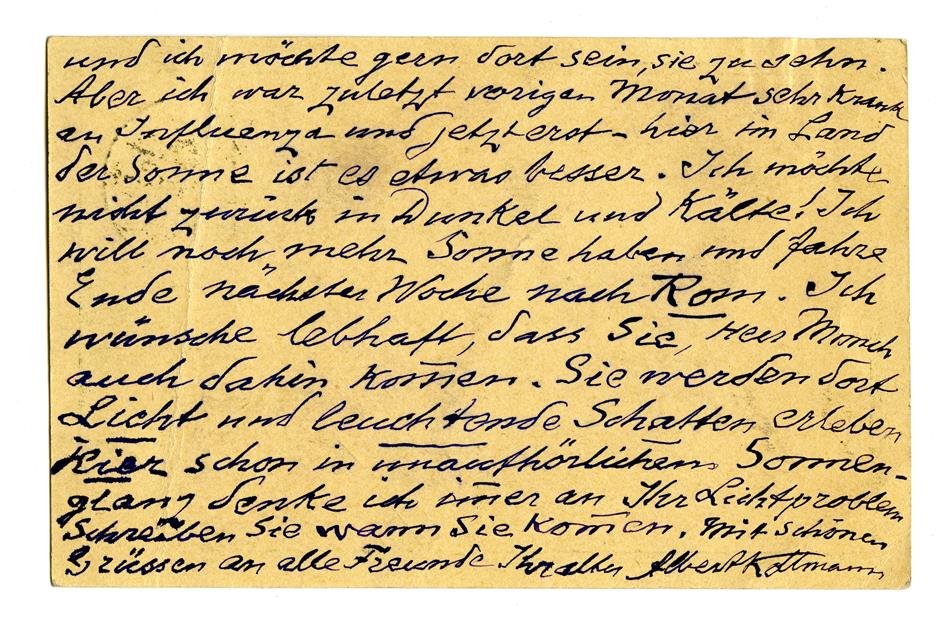 und ich möchte gern dort sein, sie zu sehn.
Aber ich war zuletzt vorigen Monat sehr krank
an Influenza und jetzt erst – hier im Land
der Sonne ist es etwas besser. Ich möchte
nicht zurück in Dunkel und Kälte! Ich
will noch mehr Sonne haben und fahre
Ende nächster Woche nach Rom. Ich
wünsche lebhaft, dass Sie, Herr Monch
auch dahin kom̄en. Sie werden dort
Licht und leuchtende Schatten erleben
Hier schon in unaufhörlichem Sonnen-
glanz denke ich im̄er an Ihr Lichtproblem
Schreiben Sie wann Sie kom̄en. Mit schönen
Grüssen an alle Freunde Ihr alter Albert Kollmann